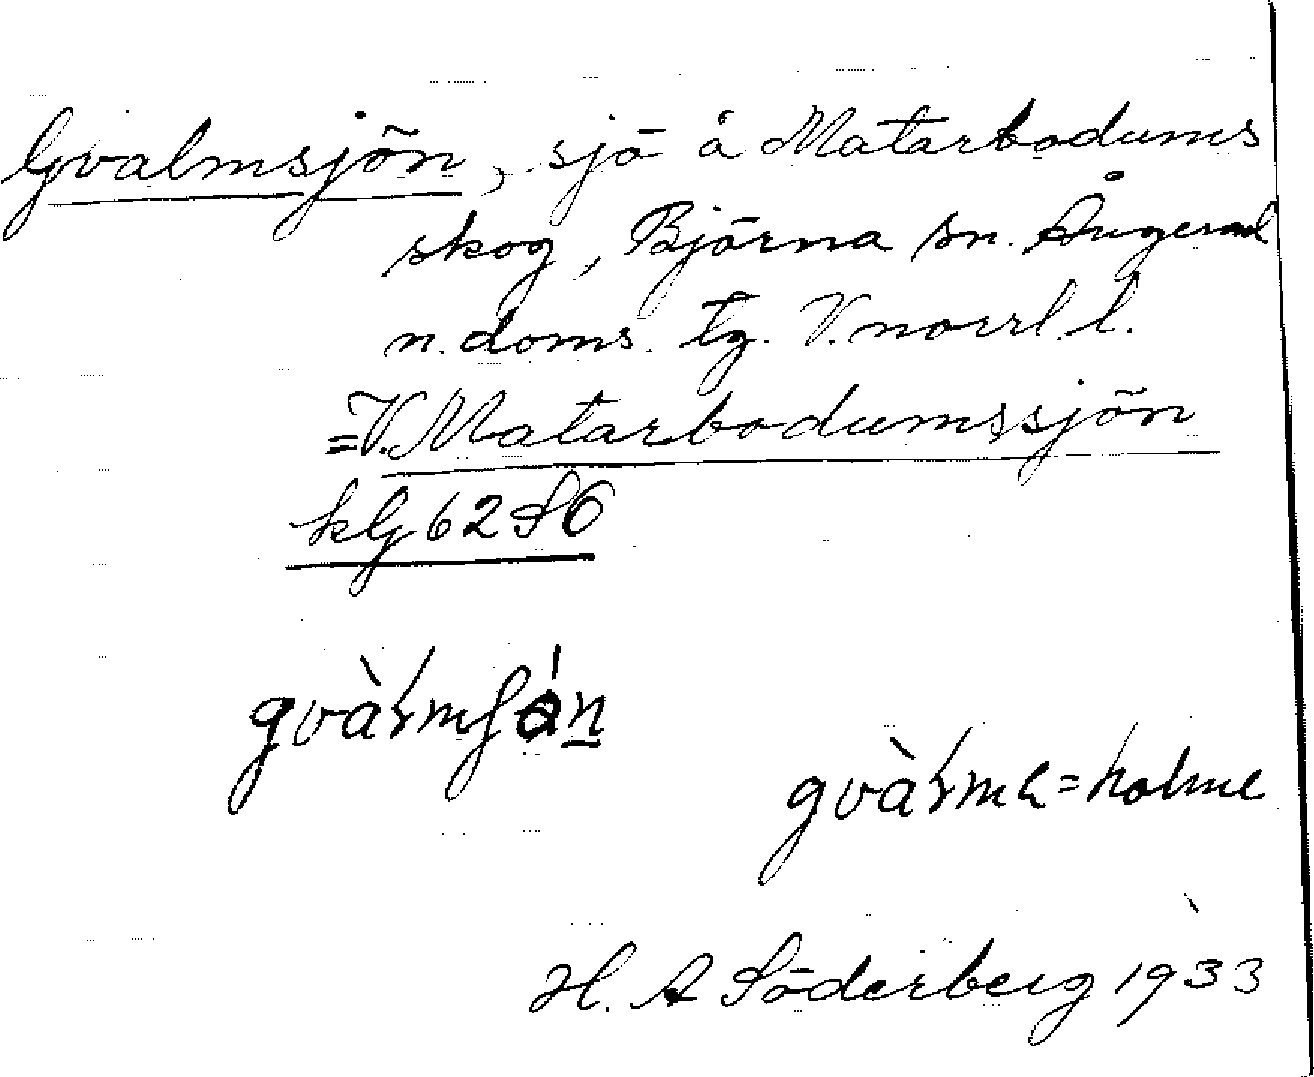 Gvalmsjön, sjö å Matarbodums
skog, Björna sn. Ångerml
n. doms. tg. V.norrl. l.
=V. Matarbodumssjön
kG 62 S6
holme
H. A Söderberg 1933